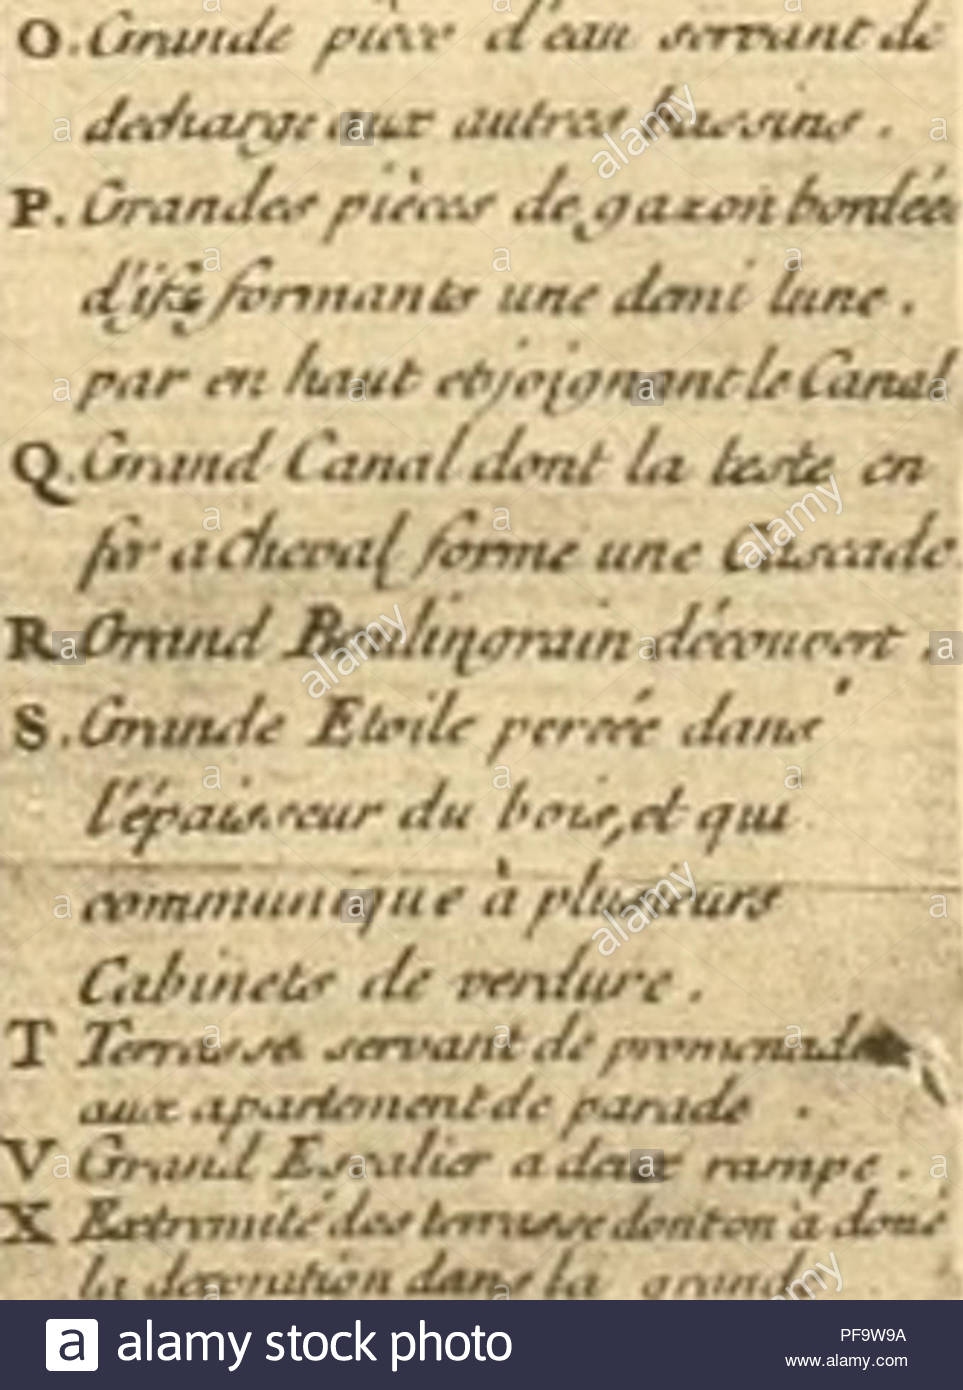 O. Grande pièce d'eau servant de
decharge aux autres bassins.
P. Grandes pièces de gazon bordées
d'ifs formants une demi lune.
par en haut et joignant le Canal
Q. Grand Canal dont la teste en
fer a cheval forme une Cascade
R. Grand Boulingrain découvert.
S. Grande Etoile percée dans
l'épaisseur du bois, et qui
communique à plusieurs
Cabinets de verdure.
T Terrasse servant de promenade
aux apartement de parade.
V Grand Escalier a deux rampe.
X Extremité des terrasse dont on a doné
la decoration dans la grand
a alamy stock photo
PF9W9A
www.alamy.com